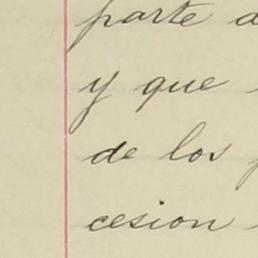 parte d
y que
de los
cesion